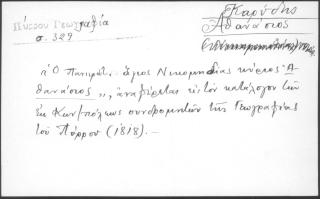 Πύρρου Γεωγραφία
σ. 329
Καρύδης
Ἀθανάσιος
«Ὁ Πανιερ. ἅγιος Νικομηδίας κύριος Ἀ-
θανάσιος», ἀναφέρεται εἰς τὸν κατάλογον τῶν
ἐκ Κων/πόλεως συνδρομητῶν τῆς Γεωγραφίας
τοῦ Πύρρου (1818). —